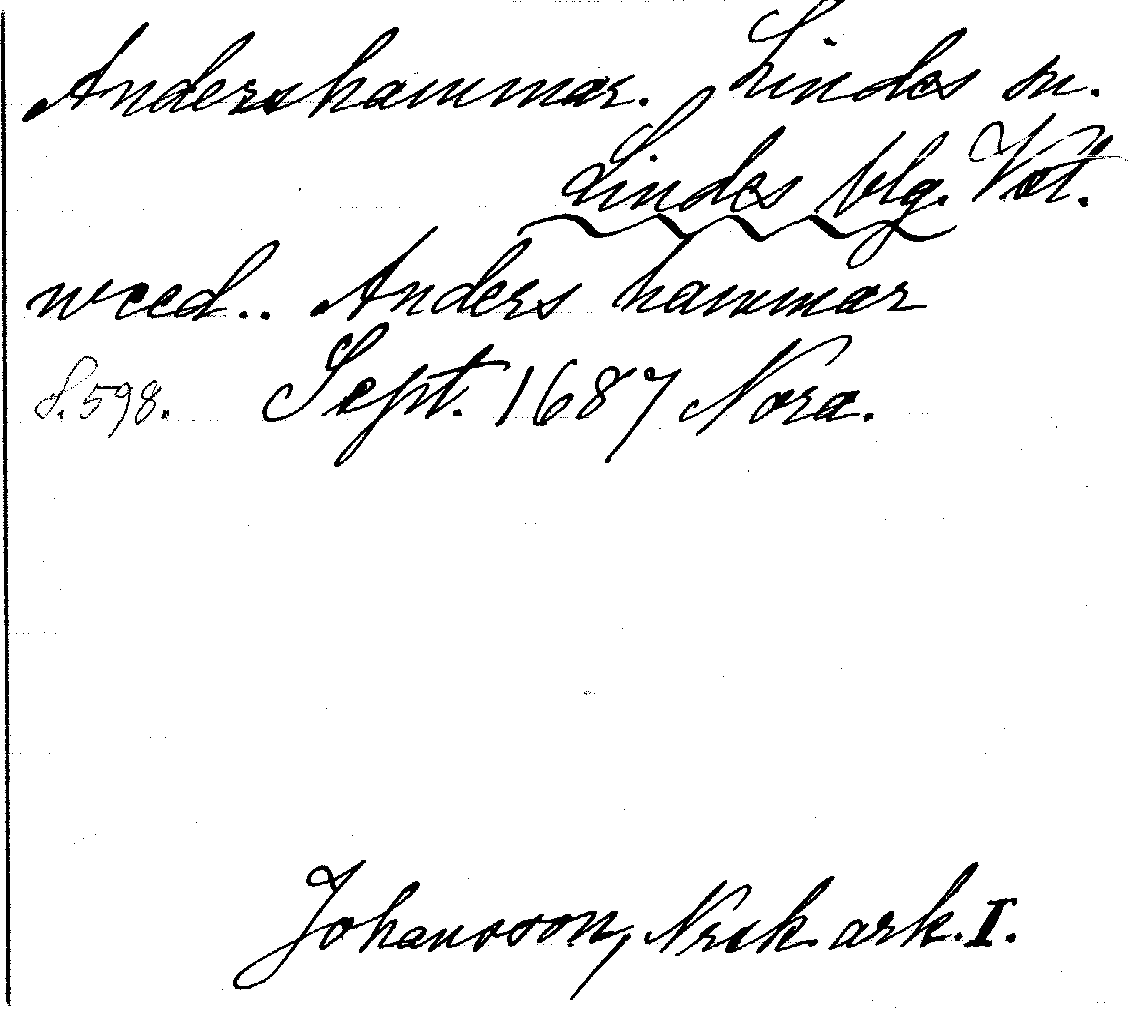 Andershammar. Lindes sn.
Lindes blg. Vstl.
weed.. Anders hammar
S. 598. Sept. 1687 Nora.
Johansson, Nrik. ark. I.